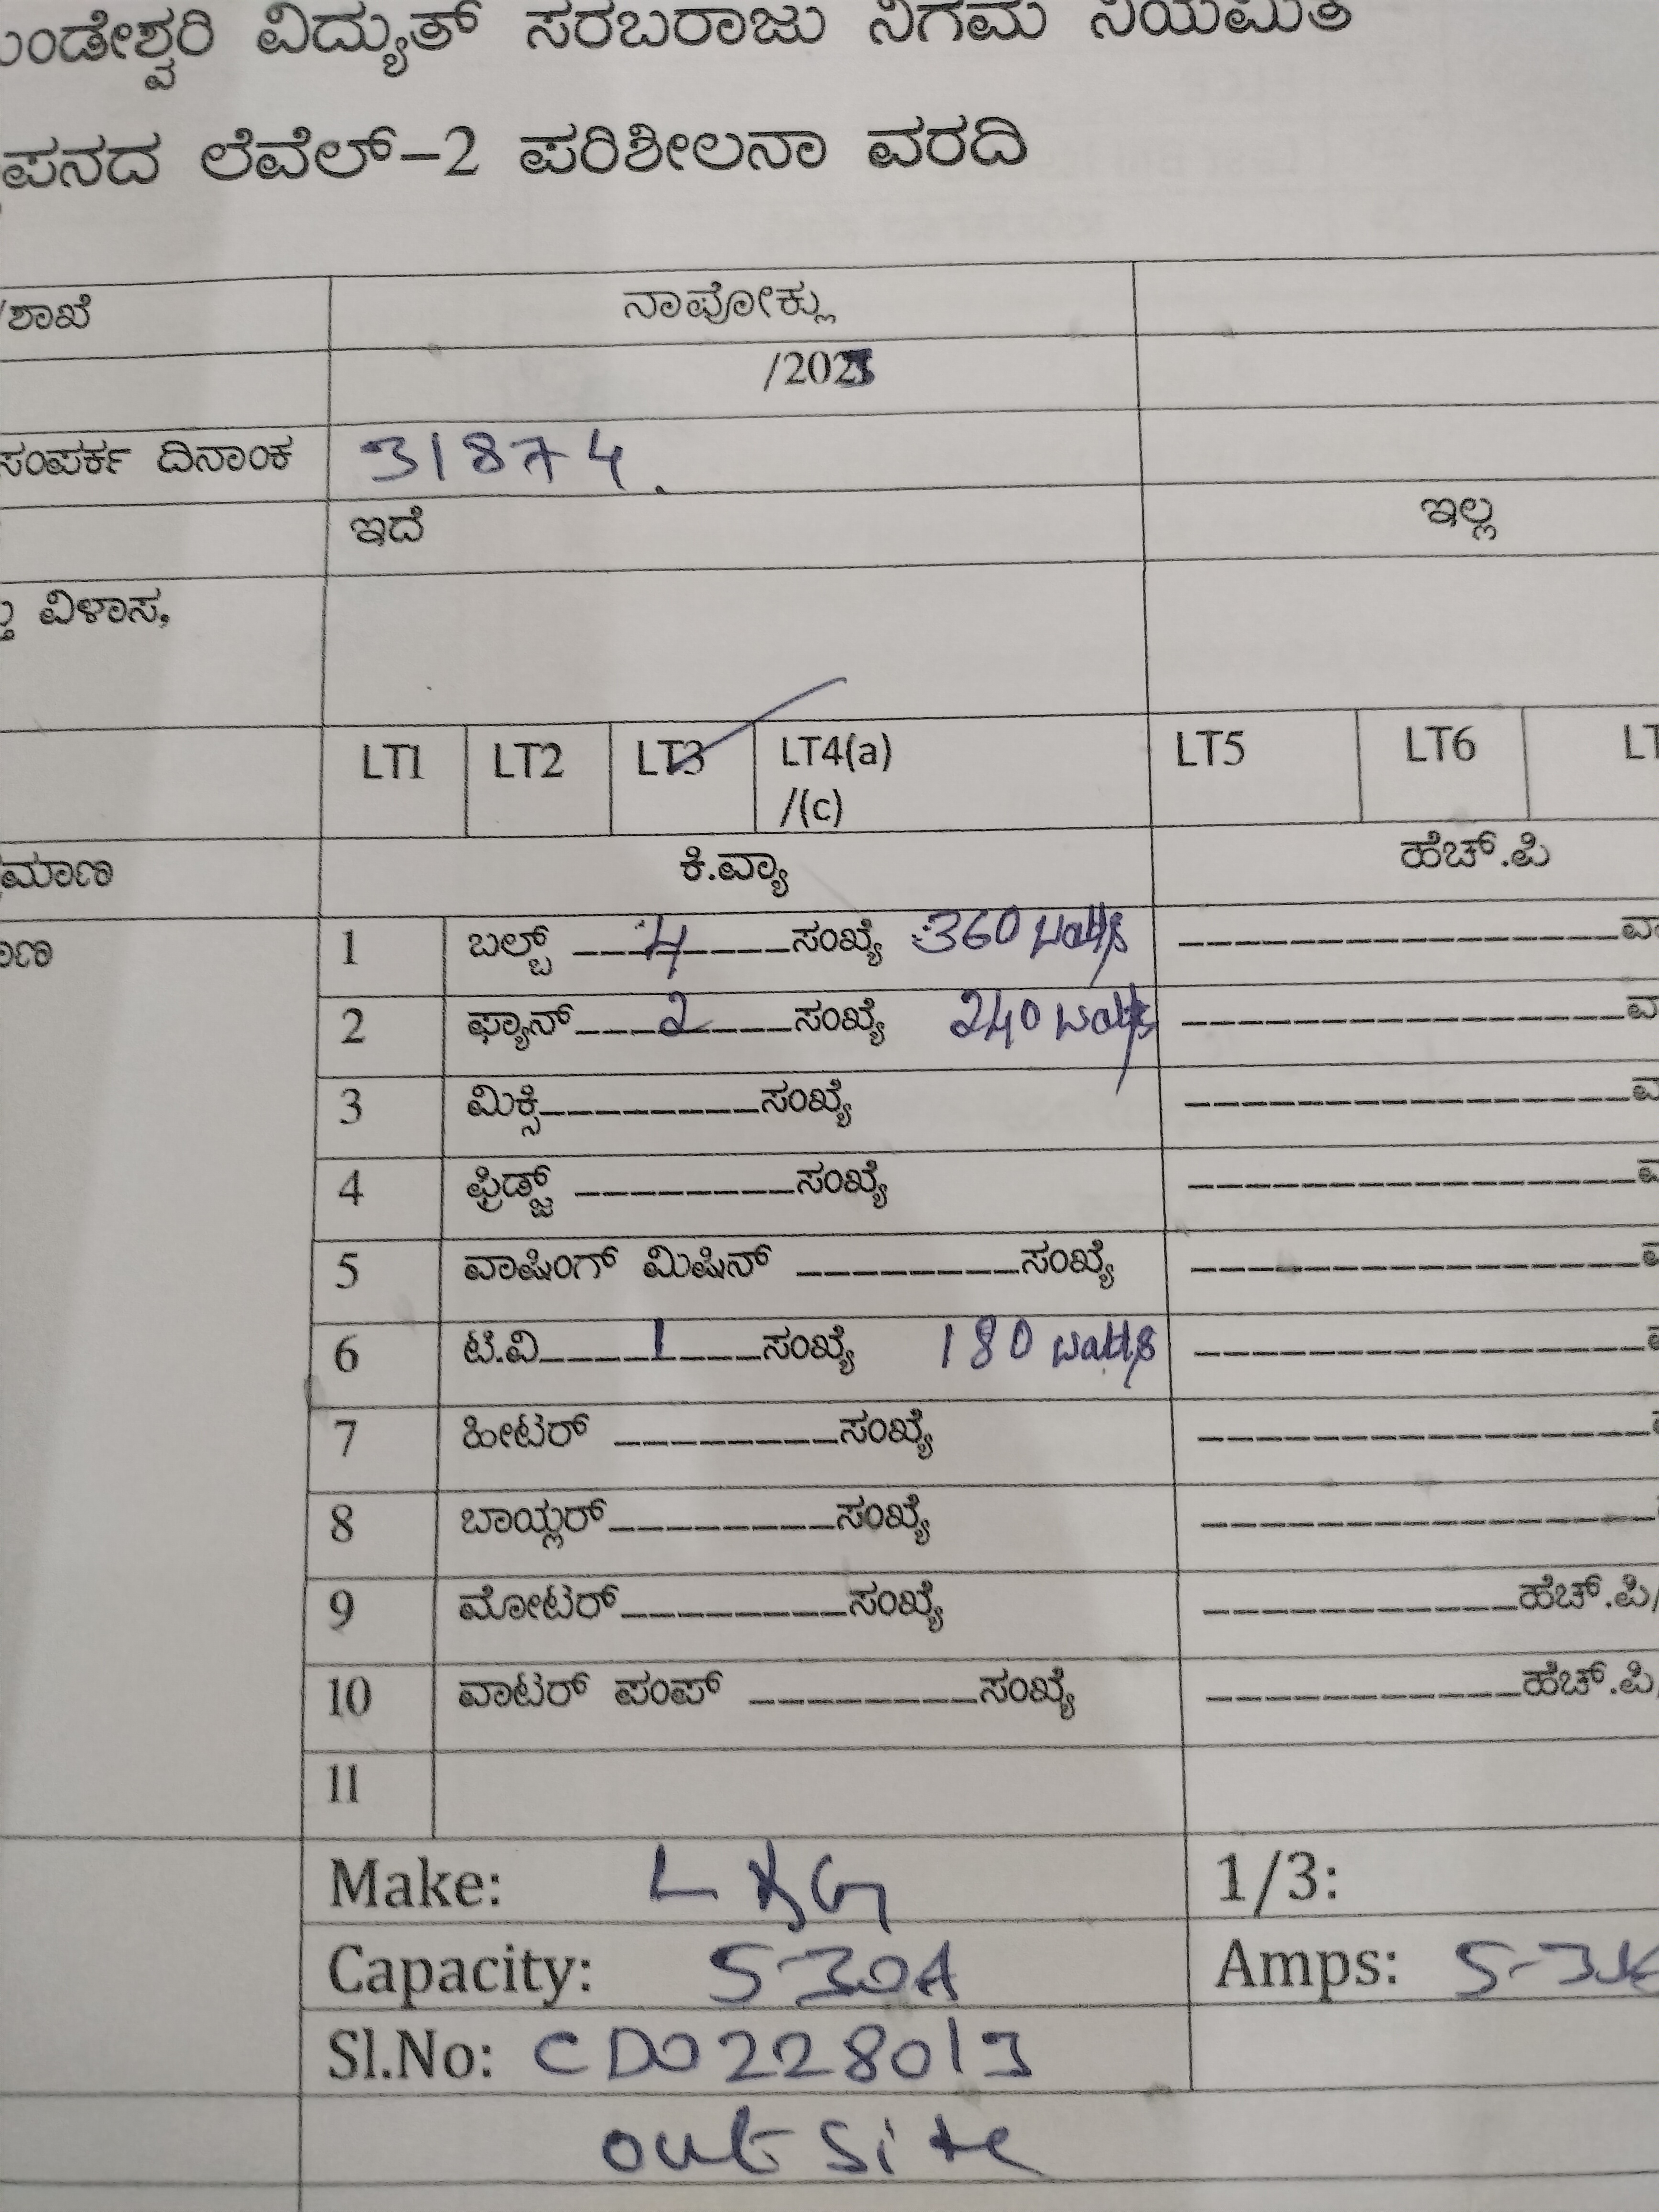 ವಿದ್ಯುತ್ ಸರಬರಾಜು ನಿಗಮ ನಿಯಮಿತ
ಲೆವೆಲ್-2 ಪರಿಶೀಲನಾ ವರದಿ
/ಶಾಖೆ ನಾಪೋಕ್ಲು
ಸಂಪರ್ಕ ದಿನಾಂಕ 31874.
ಇದೆ ಇಲ್ಲ
ವಿಳಾಸ,
LT1 LT2 LT3 LT4(a) LT5 LT6
/(c)
ಕಿ.ವ್ಯಾ ಹೆಚ್.ಪಿ
1 ಬಲ್ಬ್ ________4________ಸಂಖ್ಯೆ 360 watts
2 ಫ್ಯಾನ್________2________ಸಂಖ್ಯೆ 240 watts
3 ಮಿಕ್ಸಿ________ಸಂಖ್ಯೆ
4 ಫ್ರಿಡ್ಜ್ ________ಸಂಖ್ಯೆ
5 ವಾಷಿಂಗ್ ಮಿಷಿನ್ ________ಸಂಖ್ಯೆ
6 ಟಿ.ವಿ____1____ಸಂಖ್ಯೆ 180 watts
7 ಹೀಟರ್ ________ಸಂಖ್ಯೆ
8 ಬಾಯ್ಲರ್________ಸಂಖ್ಯೆ
9 ಮೋಟರ್________ಸಂಖ್ಯೆ ________ಹೆಚ್.ಪಿ/
10 ವಾಟರ್ ಪಂಪ್ ________ಸಂಖ್ಯೆ ________ಹೆಚ್.ಪಿ/
11
Make: L&G 1/3:
Capacity: 5-30A Amps:
Sl.No:
out site